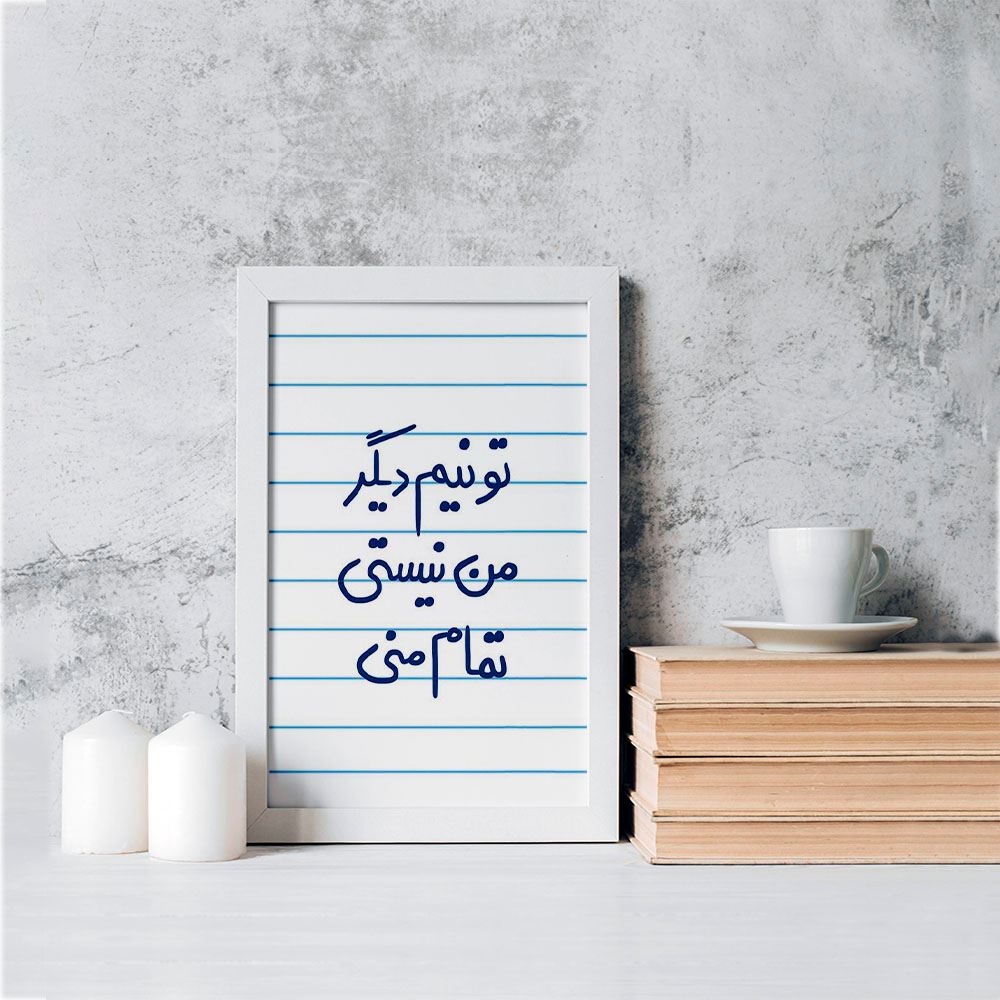 تو نیم دیگر
من نیستی
تمام منی